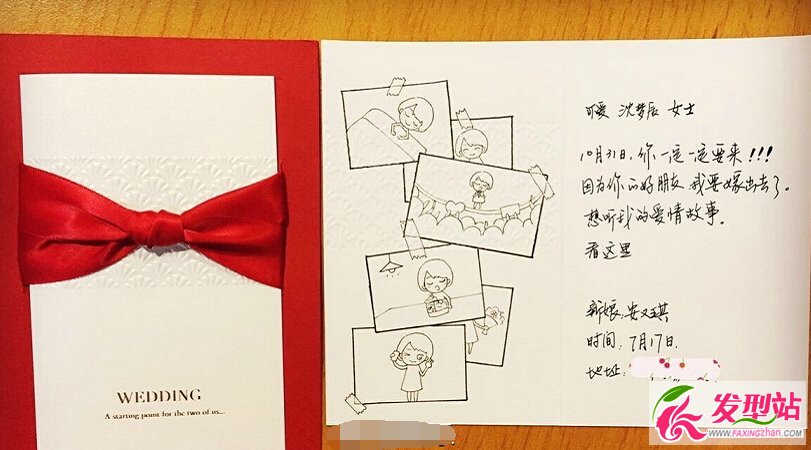 WEDDING
A starting point for the two of us...
可爱 沈梦辰 女士
10月31日,你一定一定要来!!!
因为你的好朋友,我要嫁出去了。
想听我的爱情故事。
看这里
新娘:安又琪
时间:7月17日.
地址:
发型站
www.FAXINGzhan.com